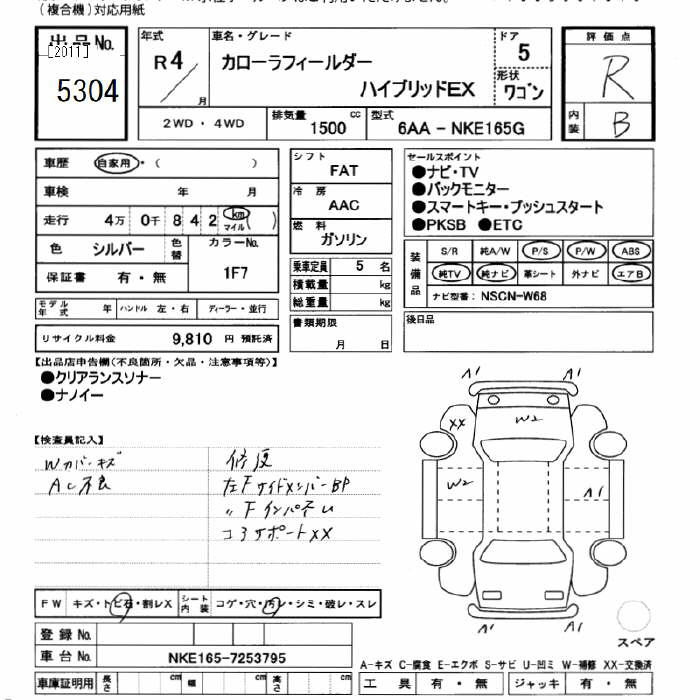 (複合機)対応用紙
出品No.
[2011]
5304
年式
R4
月
車名・グレード
カローラフィールダー
ハイブリッドEX
ドア
5
形状
ワゴン
2WD・4WD
排気量
1500 cc
型式
6AA - NKE165G
評価点
R
内装
B
車歴
自家用・( )
車検 年 月
走行 4万 0千 8 4 2 km マイル ( )
色 シルバー 色替
カラーNo.
1F7
保証書 有・無
モデル年式 年 ハンドル 左・右 ディーラー・並行
リサイクル料金 9,810 円 預託済
シフト
FAT
冷房
AAC
燃料
ガソリン
乗車定員 5 名
積載量 kg
総重量 kg
書類期限
月 日
セールスポイント
●ナビ・TV
●バックモニター
●スマートキー・プッシュスタート
●PKSB ●ETC
装備品
S/R 純A/W P/S P/W ABS
純TV 純ナビ 革シート 外ナビ エアB
ナビ型番: NSCN-W68
後日品
【出品店申告欄(不良箇所・欠品・注意事項等)】
●クリアランスソナー
●ナノイー
【検査員記入】
Wカバーキズ
AC不良
修復
左FサイドメンバーBP
〃Fインパネし
コアサポートXX
A1
A1
XX
W2
W2
A1
A1
A1
スペア
FW キズ・トビ石・割レX シート内装 コゲ・穴・汚レ・シミ・破レ・スレ
登録No.
車台No. NKE165-7253795
車庫証明用 長さ cm 幅 cm 高さ cm
A-キズ C-腐食 E-エクボ S-サビ U-凹ミ W-補修 XX-交換済
工具 有・無 ジャッキ 有・無